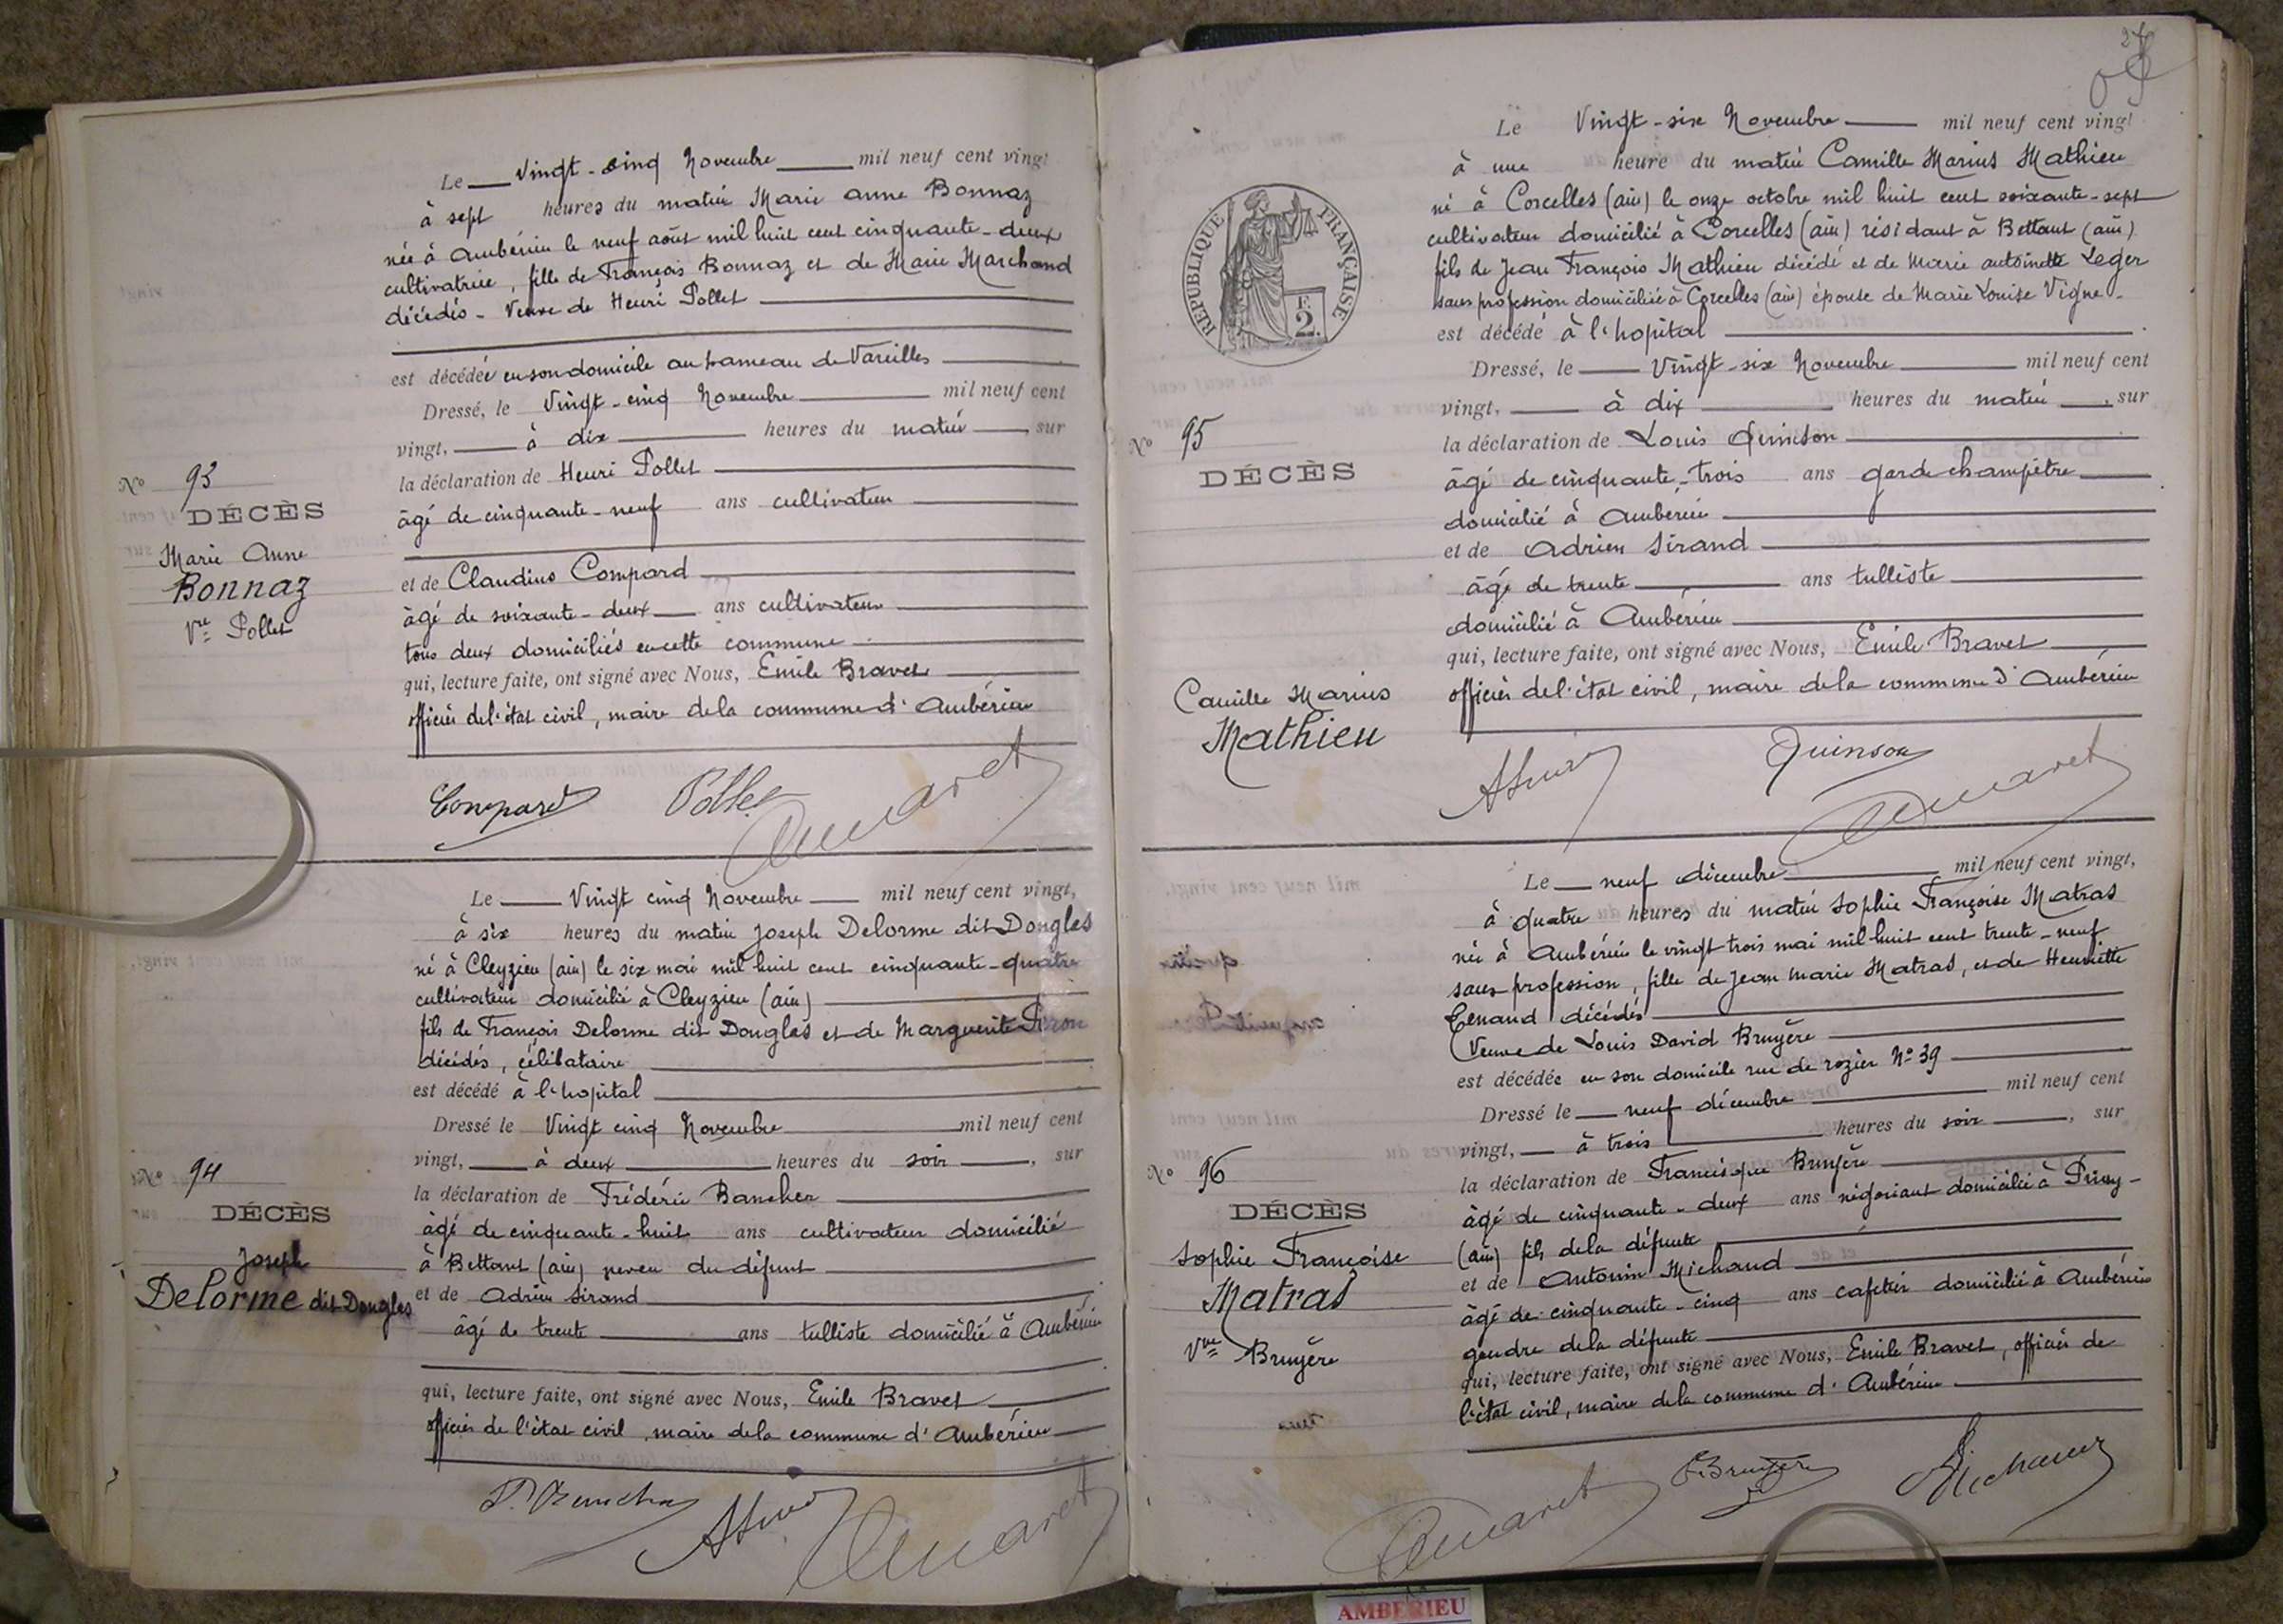 Le Vingt-cinq Novembre mil neuf cent vingt
à sept heures du matin Marie Anne Bonnaz
née à Ambérieu le neuf août mil huit cent cinquante-deux
cultivatrice, fille de François Bonnaz et de Marie Marchand
décédés - Veuve de Henri Pollet
est décédée en son domicile au hameau de Vareilles
Dressé, le Vingt-cinq Novembre mil neuf cent
vingt, à dix heures du matin, sur
la déclaration de Henri Pollet
âgé de cinquante-neuf ans cultivateur
et de Claudius Compard
âgé de soixante-deux ans cultivateur
tous deux domiciliés en cette commune
qui, lecture faite, ont signé avec Nous, Emile Bravet
officier de l'état civil, maire de la commune d'Ambérieu
No 93
DÉCÈS
Marie Anne
Bonnaz
Vve Pollet
Compard Pollet
Le Vingt cinq Novembre mil neuf cent vingt,
à six heures du matin Joseph Delorme dit Douglas
né à Cleyzieu (ain) le six mai mil huit cent cinquante-quatre
cultivateur domicilié à Cleyzieu (ain)
fils de François Delorme dit Douglas et de Marguerite
décédés, célibataire
est décédé à l'hopital
Dressé le Vingt cinq Novembre mil neuf cent
vingt, à deux heures du soir, sur
la déclaration de Frédéric
âgé de cinquante-huit ans cultivateur domicilié
à Bettant (ain) neveu du défunt
et de Adrien Sirand
âgé de trente ans tulliste domicilié à Ambérieu
qui, lecture faite, ont signé avec Nous, Emile Bravet
officier de l'état civil, maire de la commune d'Ambérieu
No 94
DÉCÈS
Joseph
Delorme dit Douglas
27
RÉPUBLIQUE FRANÇAISE
2 F.
Le Vingt-six Novembre mil neuf cent vingt
à une heure du matin Camille Marius Mathieu
né à Corcelles (ain) le onze octobre mil huit cent soixante-sept
cultivateur domicilié à Corcelles (ain) résidant à Bettant (ain)
fils de Jean François Mathieu décédé et de Marie antoinette Leger
sans profession domiciliée à Corcelles (ain) époux de Marie Louise Vigne
est décédé à l'hopital
Dressé, le Vingt-six Novembre mil neuf cent
vingt, à dix heures du matin, sur
la déclaration de Louis Quinson
âgé de cinquante-trois ans garde champêtre
domicilié à Ambérieu
et de Adrien Sirand
âgé de trente ans tulliste
domicilié à Ambérieu
qui, lecture faite, ont signé avec Nous, Emile Bravet
officier de l'état civil, maire de la commune d'Ambérieu
No 95
DÉCÈS
Camille Marius
Mathieu
Quinson
Le neuf décembre mil neuf cent vingt,
à quatre heures du matin Sophie Françoise Matras
née à Ambérieu le vingt trois mai mil huit cent trente-neuf
sans profession, fille de Jean Marie Matras, et de Henriette
Tenand décédés
Veuve de Louis David Bruyère
est décédée en son domicile rue de rozier No 39
Dressé le neuf décembre mil neuf cent
vingt, à trois heures du soir, sur
la déclaration de Francisque Bruyère
âgé de cinquante-deux ans négociant domicilié à
(ain) fils de la défunte
et de Antonin Michaud
âgé de cinquante-cinq ans cafetier domicilié à Ambérieu
gendre de la défunte
qui, lecture faite, ont signé avec Nous, Emile Bravet, officier de
l'état civil, maire de la commune d'Ambérieu
No 96
DÉCÈS
Sophie Françoise
Matras
Vve Bruyère
F. Bruyère Michaud
AMBERIEU